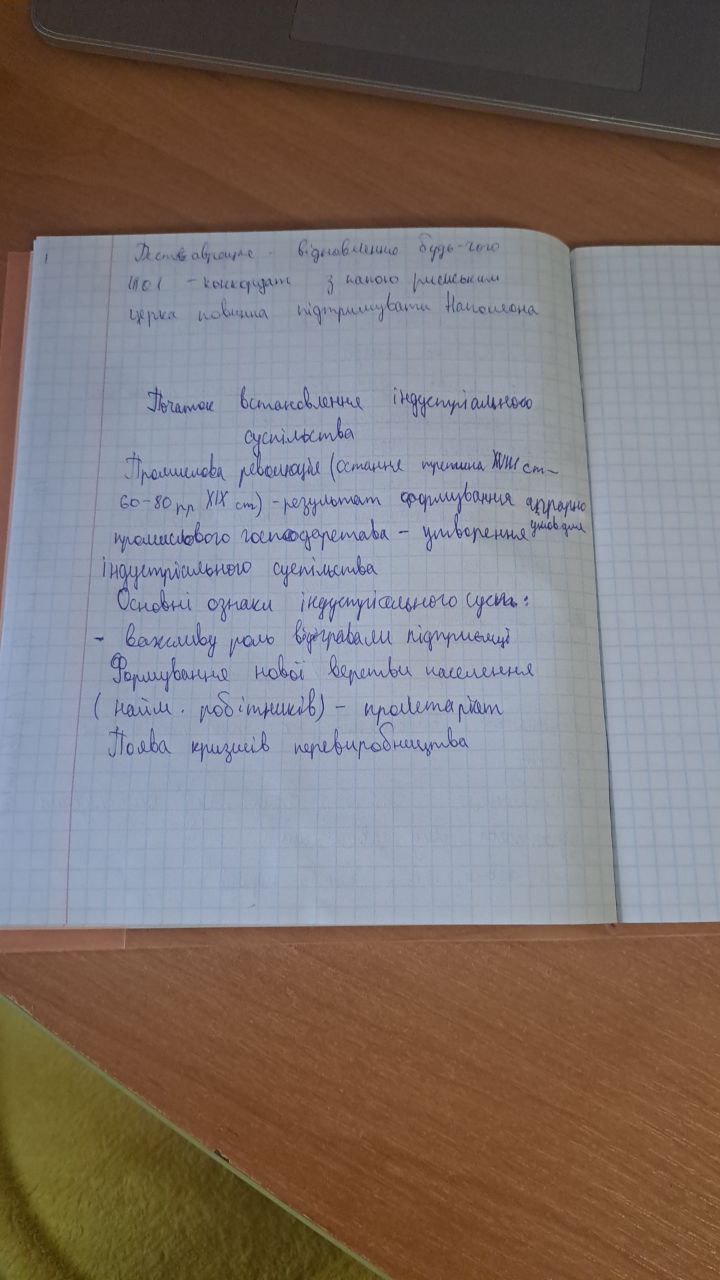 Реставрація - відновленно будь-чого
1801 - конкордат з папою римським
церка повина підтримувати Наполеона
Початок встановлення індустріального
суспільства
Промислова революція (остання третина XVIII ст -
60-80 рр XIX ст) - результат формування аграрно
промислового господарства - утворення умов для
індустріального суспільства
Основні ознаки індустріального сусп.:
- важливу роль відігравали підприємці
Формування нової верстви населення
( найм. робітників) - пролетаріат
Поява кризисів перевиробництва